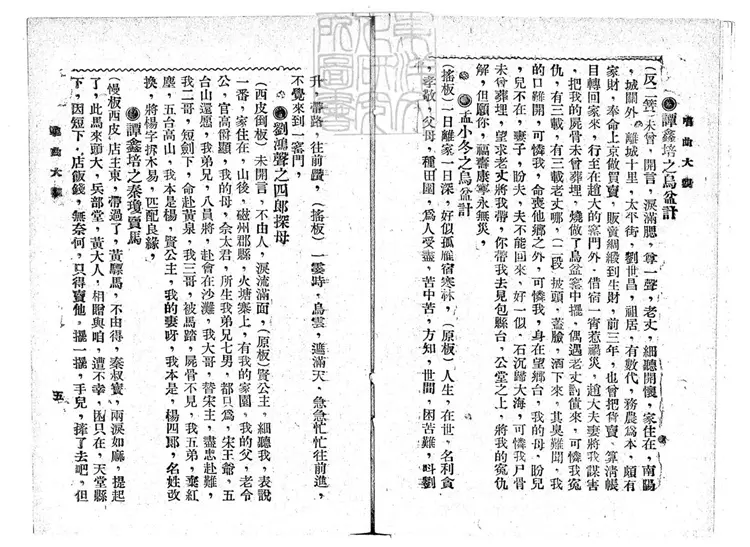 唱曲大觀
◉譚鑫培之烏盆計
(反二簧)未曾,開言,淚滿腮,尊一聲,老丈,細聽開懷,家住在,南陽
,城關外,離城十里,太平街,劉世昌,祖居,有數代,務農爲本,頗有
家財,奉命上京做買賣,販賣綢緞到生財,前三年,也曾把貨賣,算清帳
目轉回家來,行至在趙大的窰門外,借宿一宵惹禍災,趙大夫妻將我謀害
,把我的屍骨未曾葬埋,燒做了烏盆窰中擺,偶遇老丈討債來,可憐我冤
仇,有三載,有三載老丈哪,(二段)披頭,蓋臉,洒下來,其臭難聞,我
的口難開,可憐我,命喪他鄉之外,可憐我,身在望鄉台,我的母,盼兒
,兒不在,妻子,盼夫,夫不能回來,好一似,石沉歸大海,可憐我尸骨
未曾葬埋,望求老丈將我帶,你帶我去見包縣台,公堂之上,將我的寃仇
解,但願你,福壽康寧永無災,
◉孟小冬之烏盆計
(搖板)一日離家一日深,好似孤雁宿寒林,(原板)人生,在世,名利貪
,孝敬,父母,種田園,爲人受盡,苦中苦,方知,世間,困苦難,叫劉
升,帶路,往前趲,(搖板)一霎時,烏雲,遮滿天,急急忙忙往前進,
不覺來到一窰門,
◉劉鴻聲之四郎探母
(西皮倒板)未開言,不由人,淚流滿面,(原板)賢公主,細聽我,表說
一番,家住在,山後,磁州郡縣,火塘寨上,有我的家園,我的父,老令
公,官高爵顯,我的母,佘太君,所生我弟兄七男,都只爲,宋王爺,五
台山還願,我弟兄,八員將,赴會在沙灘,我大哥,替宋主,盡忠赴難,
我二哥,短劍下,命赴黃泉,我三哥,被馬踏,屍骨不見,我五弟,棄紅
塵,五台高山,我本是楊,賢公主,我的妻呀,我本是,楊四郎,名姓改
換,將楊字拆木易,匹配良緣,
◉譚鑫培之秦瓊賣馬
(慢板西皮)店主東,帶過了,黃驃馬,不由得,秦叔寶,兩淚如麻,提起
了,此馬來頭大,兵部堂,黃大人,相贈與咱,遭不幸,困只在,天堂縣
下,因短下,店飯錢,無奈何,只得賣他,擺一擺,手兒,摔了去吧,但
唱曲大觀
五